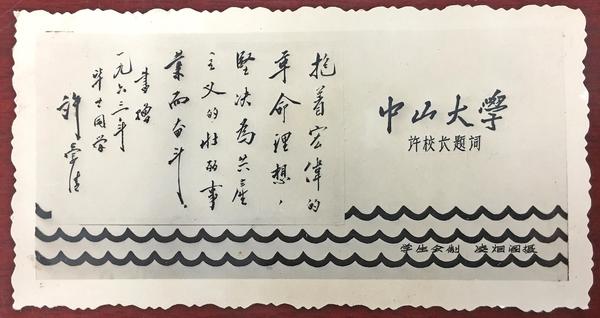 抱着宏偉的
革命理想，
堅决為共產
主义的壮丽事
業而奋斗。
書贈
一九六三年
毕业同学
许崇清
中山大學
许校长题词
学生会制 凌烟阁摄